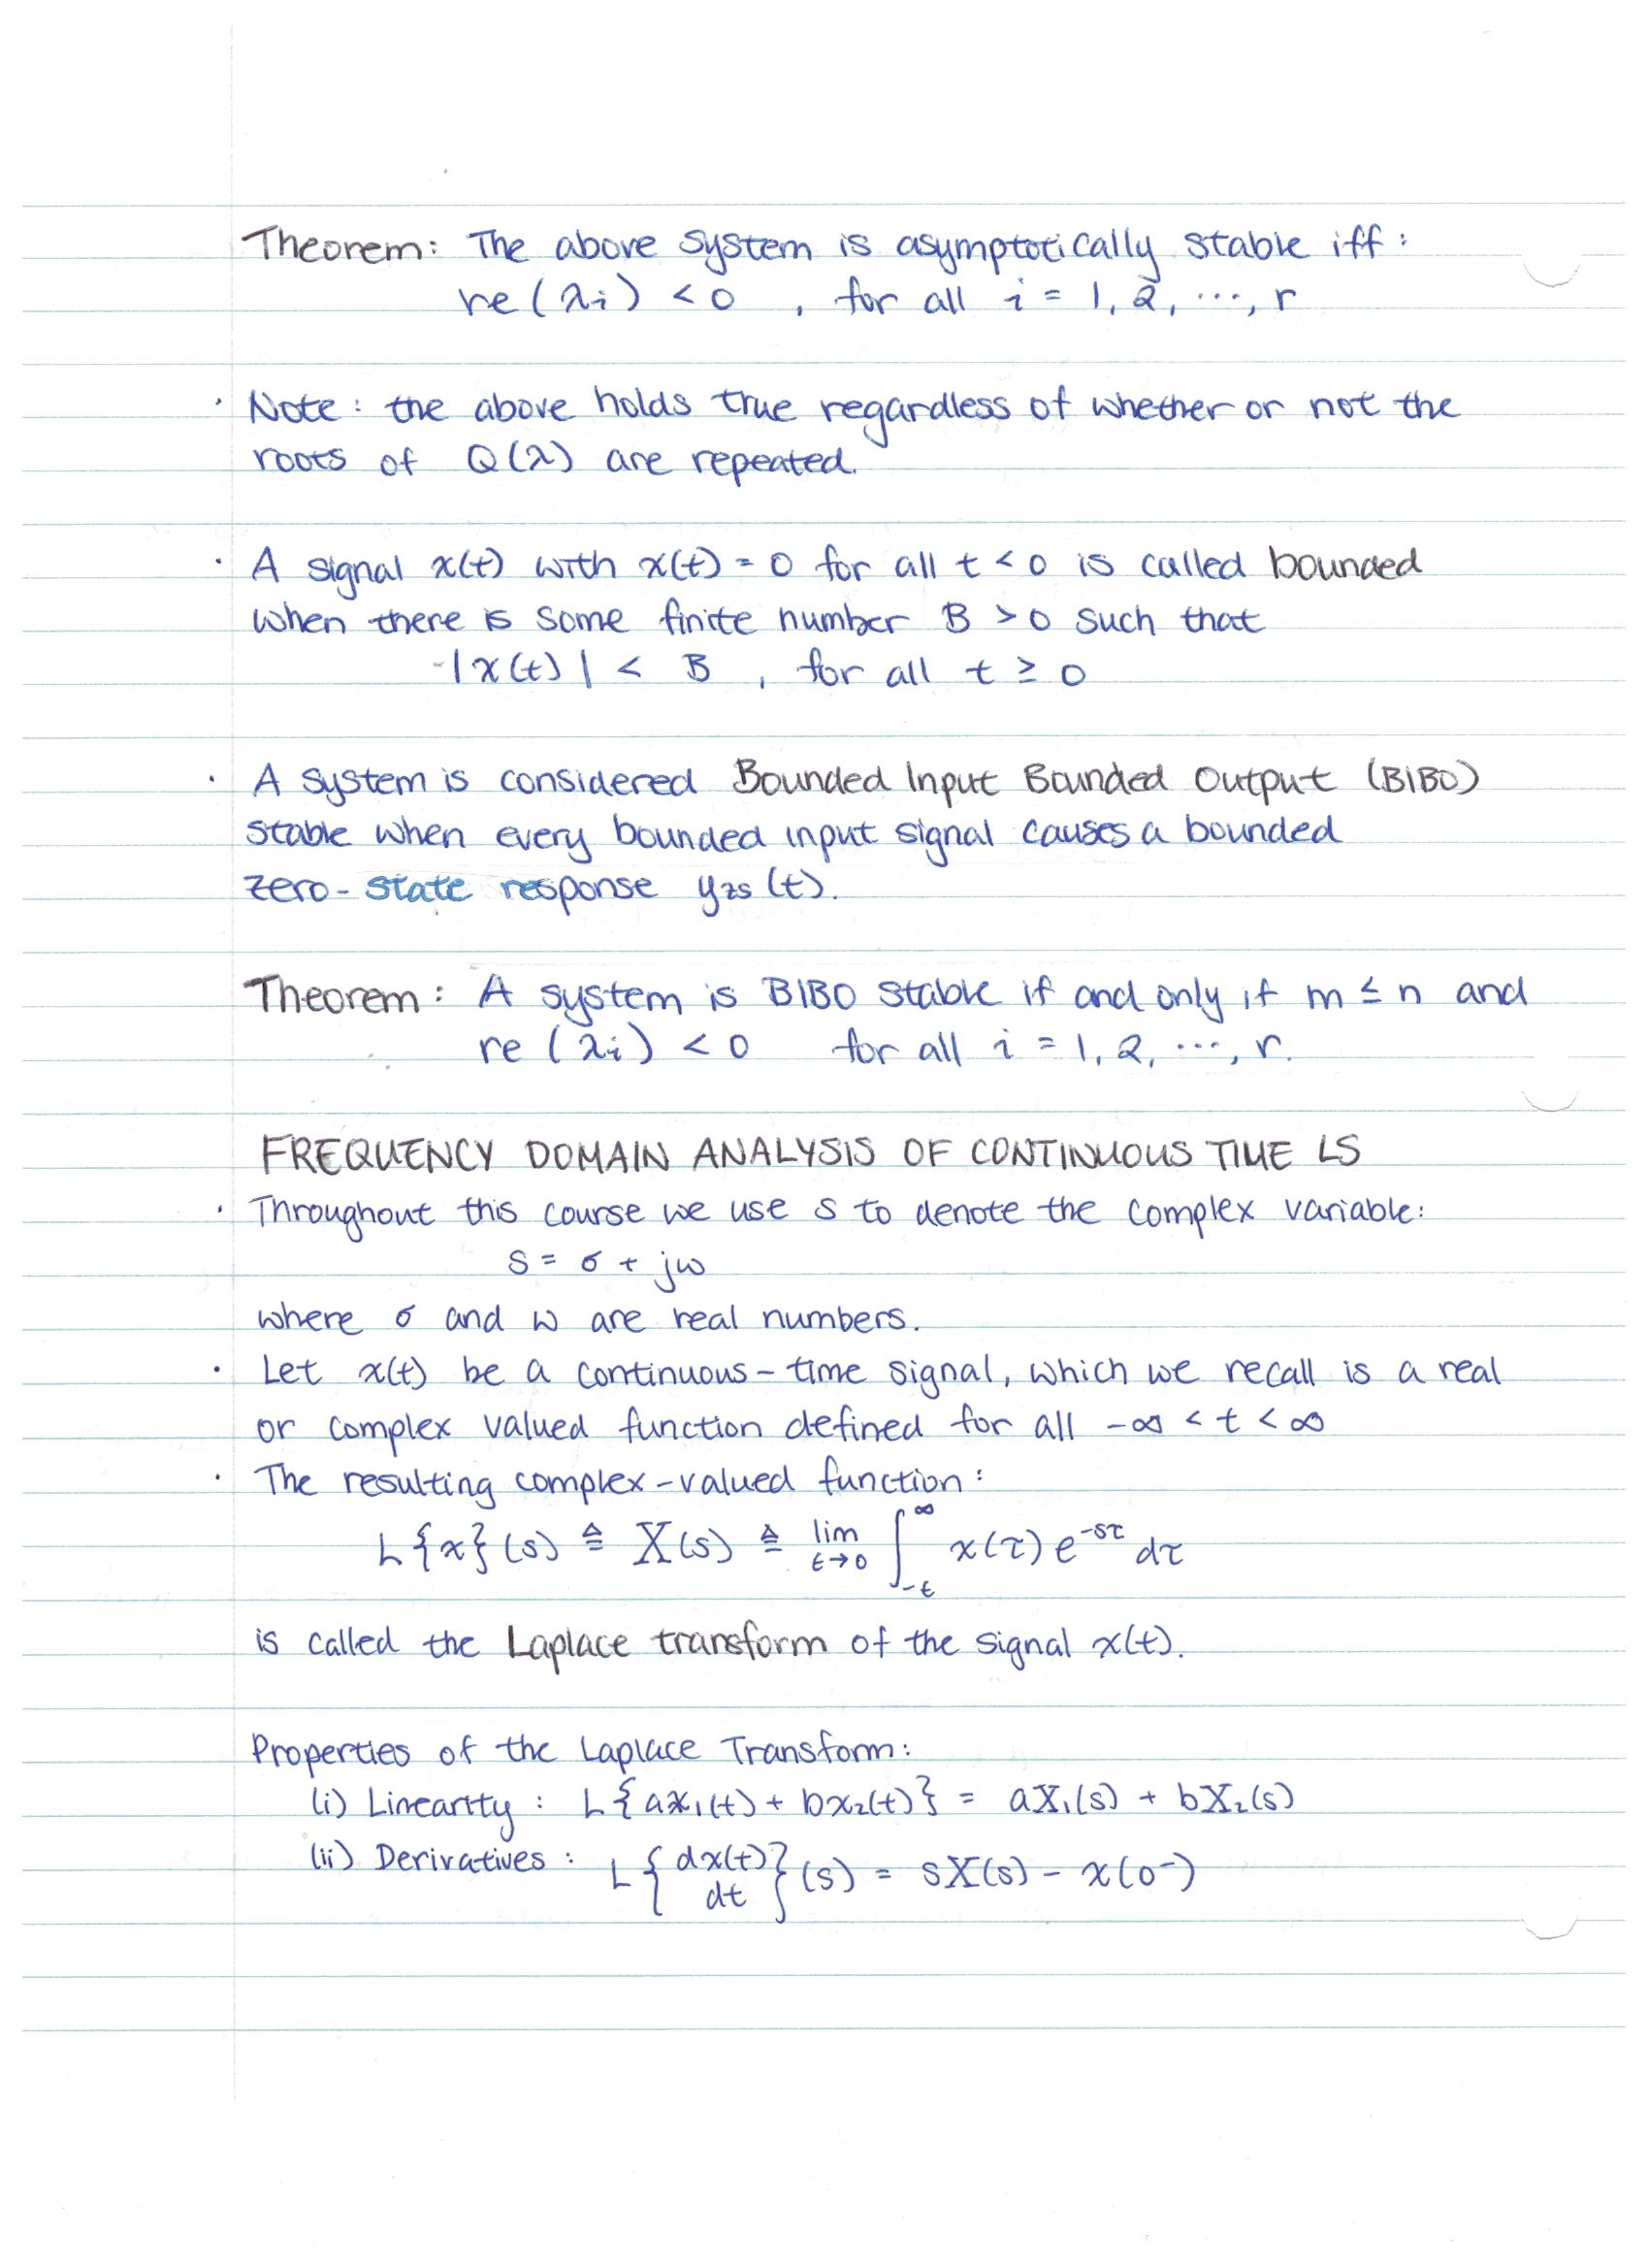 Theorem: The above system is asymptotically stable iff:
re(λi) < 0 , for all i = 1, 2, ..., r
· Note: the above holds true regardless of whether or not the
roots of Q(λ) are repeated.
· A signal x(t) with x(t) = 0 for all t < 0 is called bounded
when there is some finite number B > 0 such that
|x(t)| < B , for all t ≥ 0
· A system is considered Bounded Input Bounded Output (BIBO)
stable when every bounded input signal causes a bounded
zero-state response yzs(t).
Theorem: A system is BIBO stable if and only if m ≤ n and
re(λi) < 0 for all i = 1, 2, ..., r.
FREQUENCY DOMAIN ANALYSIS OF CONTINUOUS TIME LS
· Throughout this course we use s to denote the complex variable:
s = σ + jω
where σ and ω are real numbers.
· Let x(t) be a continuous-time signal, which we recall is a real
or complex valued function defined for all -∞ < t < ∞
· The resulting complex-valued function:
L{x}(s) ≜ X(s) ≜ lim ε→0 ∫_{-ε}^{∞} x(τ) e^{-sτ} dτ
is called the Laplace transform of the signal x(t).
Properties of the Laplace Transform:
(i) Linearity : L{ax₁(t) + bx₂(t)} = aX₁(s) + bX₂(s)
(ii) Derivatives : L{dx(t)/dt}(s) = sX(s) - x(0⁻)